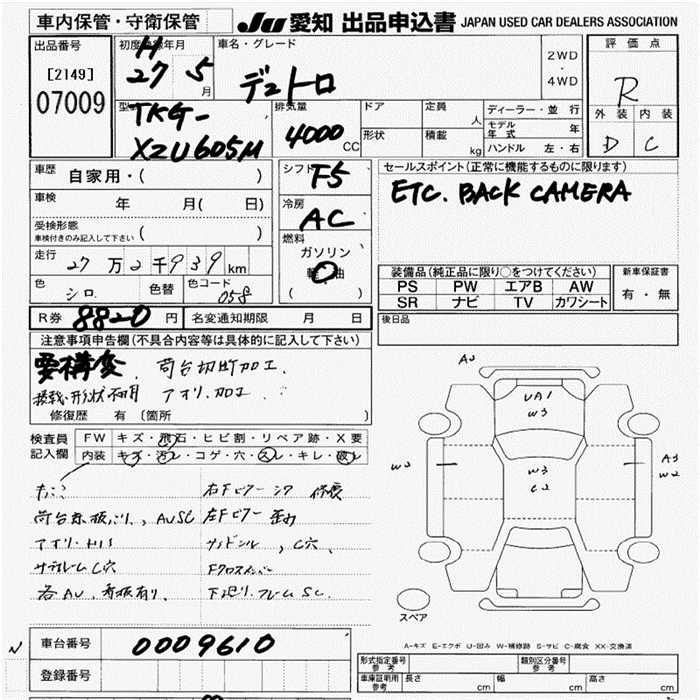 車内保管・守衛保管 JU 愛知 出品申込書 JAPAN USED CAR DEALERS ASSOCIATION
出品番号 [2149] 07009
初度登録年月 H 27 5 月
車名・グレード デュトロ
2WD ・ 4WD
評価点 R
外装 内装
D C
型式 TKG-XZU605M
排気量 4000 CC
ドア 定員 人
形状 積載 kg
ディーラー・並行
モデル年式 年
ハンドル 左・右
車歴 自家用・( )
車検 年 月( 日)
受検形態
車検付きのみ記入して下さい ( )
走行 27 万 2 千 939 km
色 シロ 色替 色コード 058
シフト F5
冷房 AC
燃料 ガソリン
軽油
( )
セールスポイント(正常に機能するものに限ります)
ETC. BACK CAMERA
装備品(純正品に限り○をつけてください)
PS PW エアB AW
SR ナビ TV カワシート
新車保証書
有・無
R券 8820 円 名変通知期限 月 日
後日品
注意事項申告欄(不具合内容等は具体的に記入して下さい)
要構変 荷台切断加工.
積載・形状不明 アオリ加工
修復歴 有 〔箇所 〕
検査員
記入欄
FW キズ・飛石・ヒビ割・リペア跡・X要
内装 キズ・汚レ・コゲ・穴・スレ・キレ・破レ
右Fピラー 修復
荷台 , AUSC 左Fピラー 歪み
アオリ , C穴
サブフレーム C穴 Fクロスメンバー
各AU. 看板有り. 下廻り.フレームSC.
A3
UA1
W3
W2
W3
C2
A3
W2
スペア
A-キズ E-エクボ U-凹み W-補修跡 S-サビ C-腐食 XX-交換済
N
車台番号 0009610
登録番号
形式指定番号 参考
類別区分番号 参考
車庫証明用 参考 長さ cm 幅 cm 高さ cm